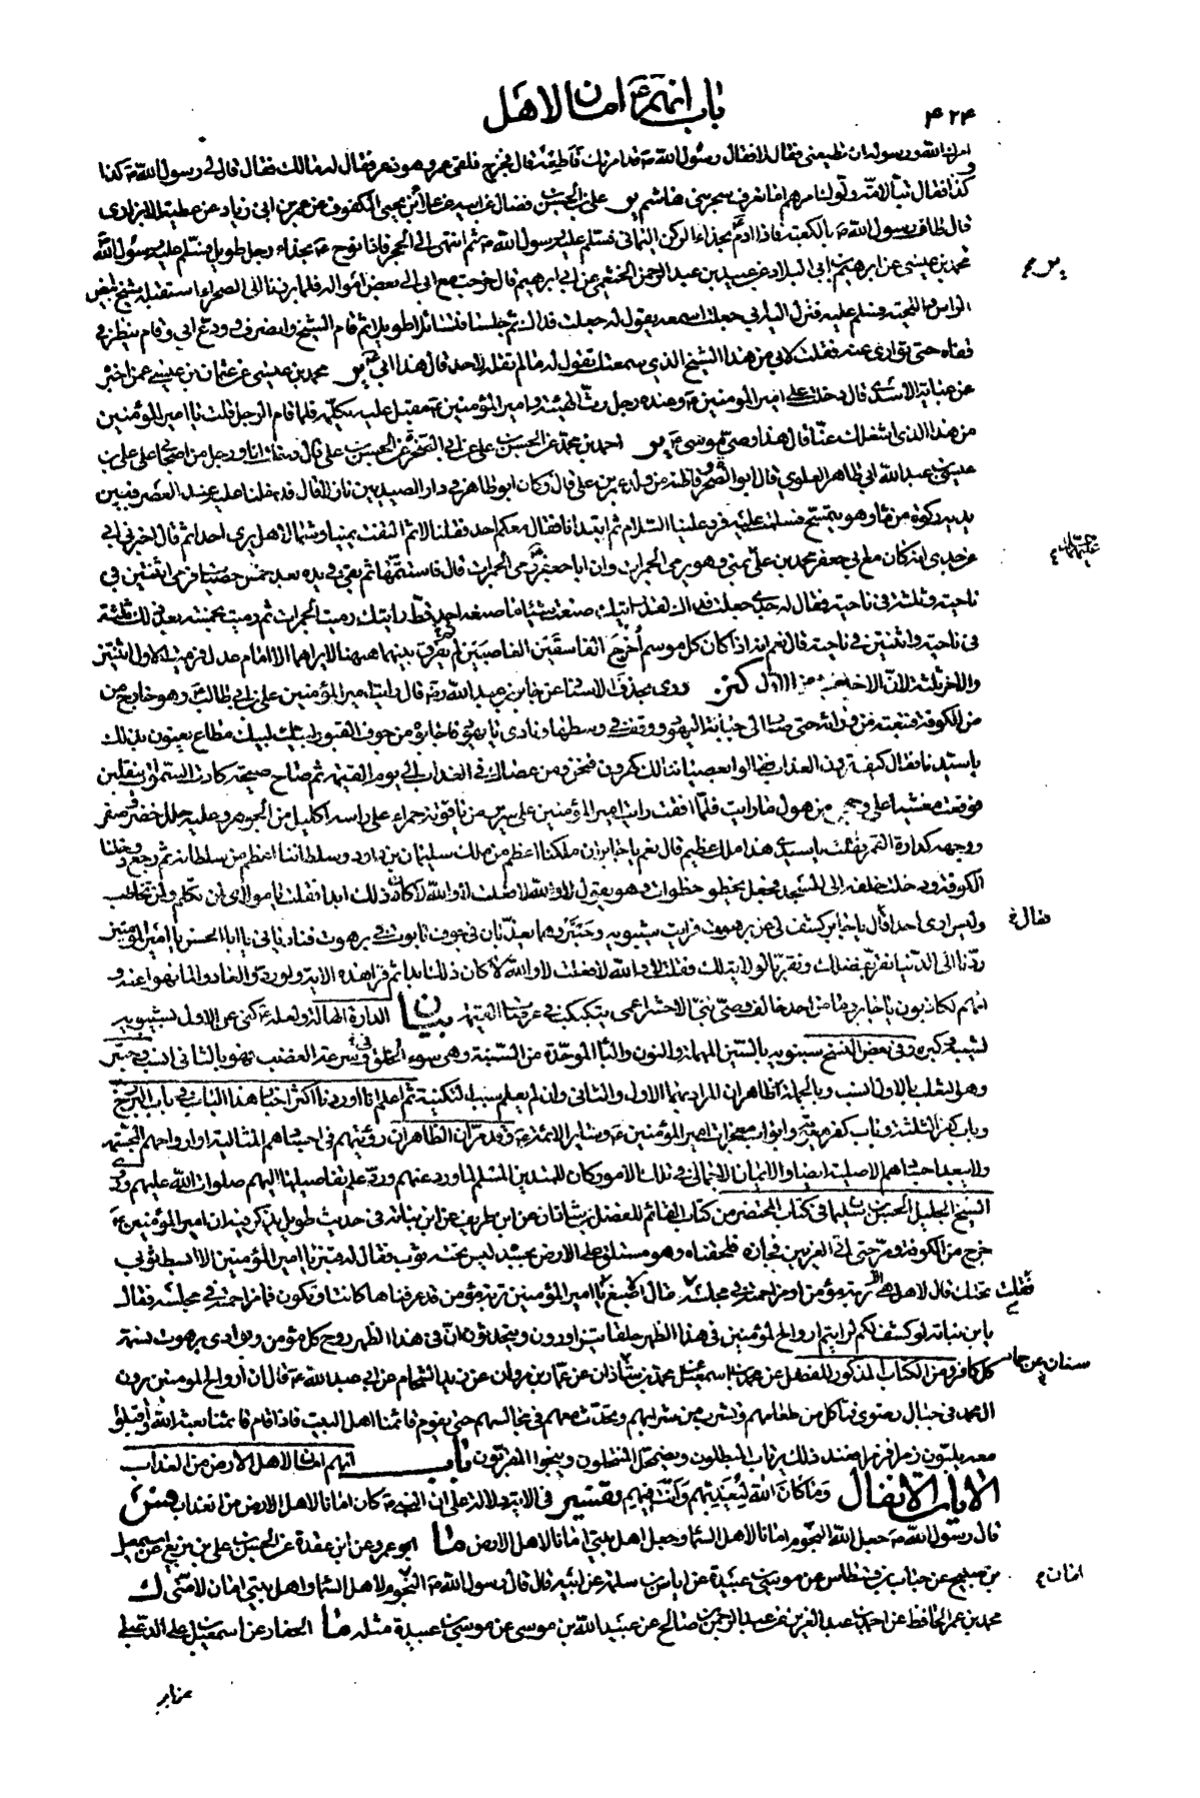 باب انهم ع امان لاهل
۴۲۴
امرك الله ورسوله ان تطيعني فقال لا فقال رسول الله ص قد امرتك فاطعه قال فخرج فلقى عمر وهو ذعر فقال له مالك فقال قال لي رسول الله ص كذا
وكذا فقال تبا لامة ولوك امرهم اما تعرف سحر بني هاشم ير علي بن الحسن بن فضال عن ابيه عن علي بن يحيى المكفوف عن عمر بن ابي زياد عن عطية الابزاري
قال طاف رسول الله ص بالكعبة فاذا ادم بحذاء الركن اليماني فسلم عليه رسول الله ص ثم انتهى الى الحجر فاذا نوح ع بحذاء رجل طويل فسلم عليه رسول الله
محمد بن عيسى عن ابرهيم بن ابي البلاد عن عبيد بن عبد الرحمن الخثعمي عن ابي ابرهيم قال خرجت مع ابي الى بعض امواله فلما برزنا الى الصحراء استقبله شيخ ابيض
الراس واللحية فسلم عليه فنزل اليه ابي جعلت اسمعه يقول له جعلت فداك ثم جلسا فتسائلا طويلا ثم قام الشيخ وانصرف وودع ابي وقام ينظر في
قفاه حتى توارى عنه فقلت لابي من هذا الشيخ الذي سمعتك تقول له ما لم تقله لاحد قال هذا ابي ير محمد بن عيسى عن عثمان بن عيسى عمن اخبره
عن عباية الاسدي قال دخلت على امير المؤمنين ع وعنده رجل رث الهيئة وامير المؤمنين ع مقبل عليه يكلمه فلما قام الرجل قلت يا امير المؤمنين
من هذا الذي اشغلك عنا قال هذا وصي موسى ع ير احمد بن محمد عن الحسن بن علي عن ابي الصخر عن الحسن بن علي قال دخلت انا ورجل من اصحابي على علي بن
عيسى بن عبد الله ابي طاهر العلوي قال ابو الصخر فاظنه من ولد عمر بن علي قال وكان ابو طاهر في دار الصيديين نازلا قال فدخلنا عليه عند العصر وبين
يديه ركوة من ماء وهو يتمسح فسلمت عليه فرد علينا السلام ثم ابتدانا فقال معكم احد فقلنا لا ثم التفت يمينا وشمالا هل يرى احدا ثم قال اخبرني ابي
عن جدي انه كان مع ابي جعفر محمد بن علي بمنى وهو يرمي الجمرات وان ابا جعفر رمى الجمرات قال فاستتمها ثم بقي في يده بعد خمس حصيات فرمى اثنتين في
ناحية وثلثة في ناحية فقال له جدي جعلت فداك لقد رايتك صنعت شيئا ما صنعه احد قط رايتك رميت الجمرات ثم رميت بخمسة بعد ذلك ثلثة
في ناحية واثنتين في ناحية قال نعم انه اذا كان كل موسم اخرج الفاسقين الغاصبين ثم يفرق بينهما ههنا لا يراهما الا امام عدل فرميت الاول اثنتين
والاخر ثلثة لان الاخر اخبث من الاول كنز روى بحذف الاسناد عن جابر بن عبد الله رض قال رايت امير المؤمنين علي بن ابي طالب ع وهو خارج من
من الكوفة فتبعته من ورائه حتى صار الى جبانة اليهود ووقف في وسطها ونادى يا يهود فاجابوه من جوف القبور لبيك لبيك مطاع يعنون بذلك
يا سيدنا فقال كيف ترون العذاب فقالوا بعصياننا لك كهرون فنحن ومن عصاك في العذاب الى يوم القيمة ثم صاح صيحة كادت السموات ينقلبن
فوقعت مغشيا على وجهي من هول ما رايت فلما افقت رايت امير المؤمنين على سرير من ياقوتة حمراء على راسه اكليل من الجوهر وعليه حلل خضر وصفر
ووجهه كدارة القمر فقلت يا سيدي هذا ملك عظيم قال نعم يا جابر ان ملكنا اعظم من ملك سليمان بن داود وسلطاننا اعظم من سلطانه ثم رجع ودخلنا
الكوفة ودخلت خلفه الى المسجد فجعل يخطو خطوات وهو يقول لا والله لا فعلت لا والله لا كان ذلك ابدا فقلت يا مولاي لمن تكلم ولمن تخاطب
وليس ارى احدا قال يا جابر كشف لي عن برهوت فرايت سنبويه وحبتر وهما يعذبان في جوف تابوت في برهوت فنادياني يا ابا الحسن يا امير المؤمنين
ردنا الى الدنيا نقر بفضلك ونقر بالولاية لك فقلت لا والله لا فعلت لا والله لا كان ذلك ابدا ثم قرا هذه الاية ولو ردوا لعادوا لما نهوا عنه و
انهم لكاذبون يا جابر وما من احد خالف وصي نبي الا حشر اعمى يتكبكب في عرصات القيمة بيان الدارة الهالة ولعله ع كنى عن الاول بسنبويه
لشيبه وكبره وفي بعض النسخ سنبويه بالسين المهملة والنون والباء الموحدة من السنبة وهي سوء الخلق وسرعة الغضب فهو بالثاني انسب وحبتر
وهو الثعلب بالاول انسب وبالجملة الظاهر ان المراد بهما الاول والثاني وان لم يعلم سبب التكنية ثم اعلم انا اوردنا اكثر اخبار هذا الباب في باب البرزخ
وباب كفر الثلثة وباب كفر معوية وابواب معجزات امير المؤمنين ع وسائر الائمة ع وقد مر ان الظاهر ان رؤيتهم في اجسادهم المثالية او ارواحهم المجسمة
ولا يبعد اجسادهم الاصلية ايضا والايمان الاجمالي في تلك الامور كان للمتدين المسلم لما ورد عنهم ورد علم تفاصيلها اليهم صلوات الله عليهم وروى
الشيخ الجليل الحسن بن سليمان في كتاب المحتضر من كتاب القائم للفضل بن شاذان عن ابن طريف عن ابن نباتة في حديث طويل يذكر فيه ان امير المؤمنين ع
خرج من الكوفة ومر حتى اتى الغريين فجازه فلحقناه وهو مستلق على الارض بجسده ليس تحته ثوب فقال له قنبر يا امير المؤمنين الا ابسط ثوبي
تحتك قال لا هل هي الا تربة مؤمن او مزاحمته في مجلسه قال اصبغ فقلت يا امير المؤمنين تربة مؤمن قد عرفناها كانت او تكون فما مزاحمته في مجلسه فقال
يا بن نباتة لو كشف لكم لرايتم ارواح المؤمنين في هذا الظهر حلقا يتزاورون ويتحدثون ان في هذا الظهر روح كل مؤمن وبوادي برهوت نسمة
كل كافر ومن الكتاب المذكور للفضل عن محمد بن اسمعيل عن محمد بن سنان عن عمار بن مروان عن زيد الشحام عن ابي عبد الله ع قال ان ارواح المؤمنين يرون
ال محمد في جبال رضوى فتاكل من طعامهم وتشرب من شرابهم وتحدث معهم في مجالسهم حتى يقوم قائمنا اهل البيت فاذا قام قائمنا بعثهم الله واقبلوا
معه يلبون زمرا فزمرا فعند ذلك يرتاب المبطلون ويضمحل المنتحلون وينجو المقربون باب انهم امان لاهل الارض من العذاب
الايات الانفال وما كان الله ليعذبهم وانت فيهم تفسير في الاية دلالة على ان النبي ص كان امانا لاهل الارض من العذاب فس
قال رسول الله ص جعل الله النجوم امانا لاهل السماء وجعل اهل بيتي امانا لاهل الارض ما ابو عمرو عن ابن عقدة عن الحسن بن علي بن بزيع عن اسمعيل
بن صبيح عن جناب بن نسطاس عن موسى بن عبيدة عن اياس بن سلمة عن ابيه قال قال رسول الله ص النجوم لاهل السماء واهل بيتي امان لامتي ك
محمد بن عمر الحافظ عن احمد بن عبد العزيز عن عبد الرحمن بن صالح عن عبيد الله بن موسى عن موسى بن عبيدة مثله ما الحفار عن اسمعيل بن علي الدعبلي
فقال ع
فقلت
امان ع
عن ابيه